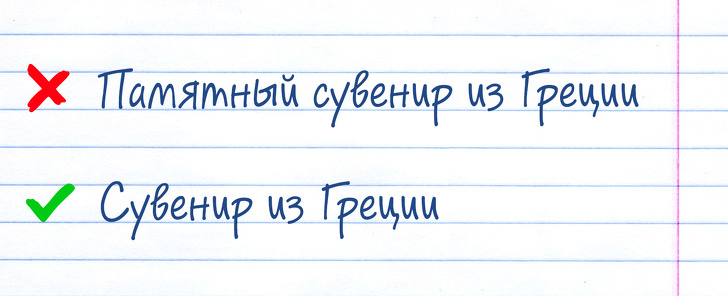 Памятный сувенир из Греции
Сувенир из Греции